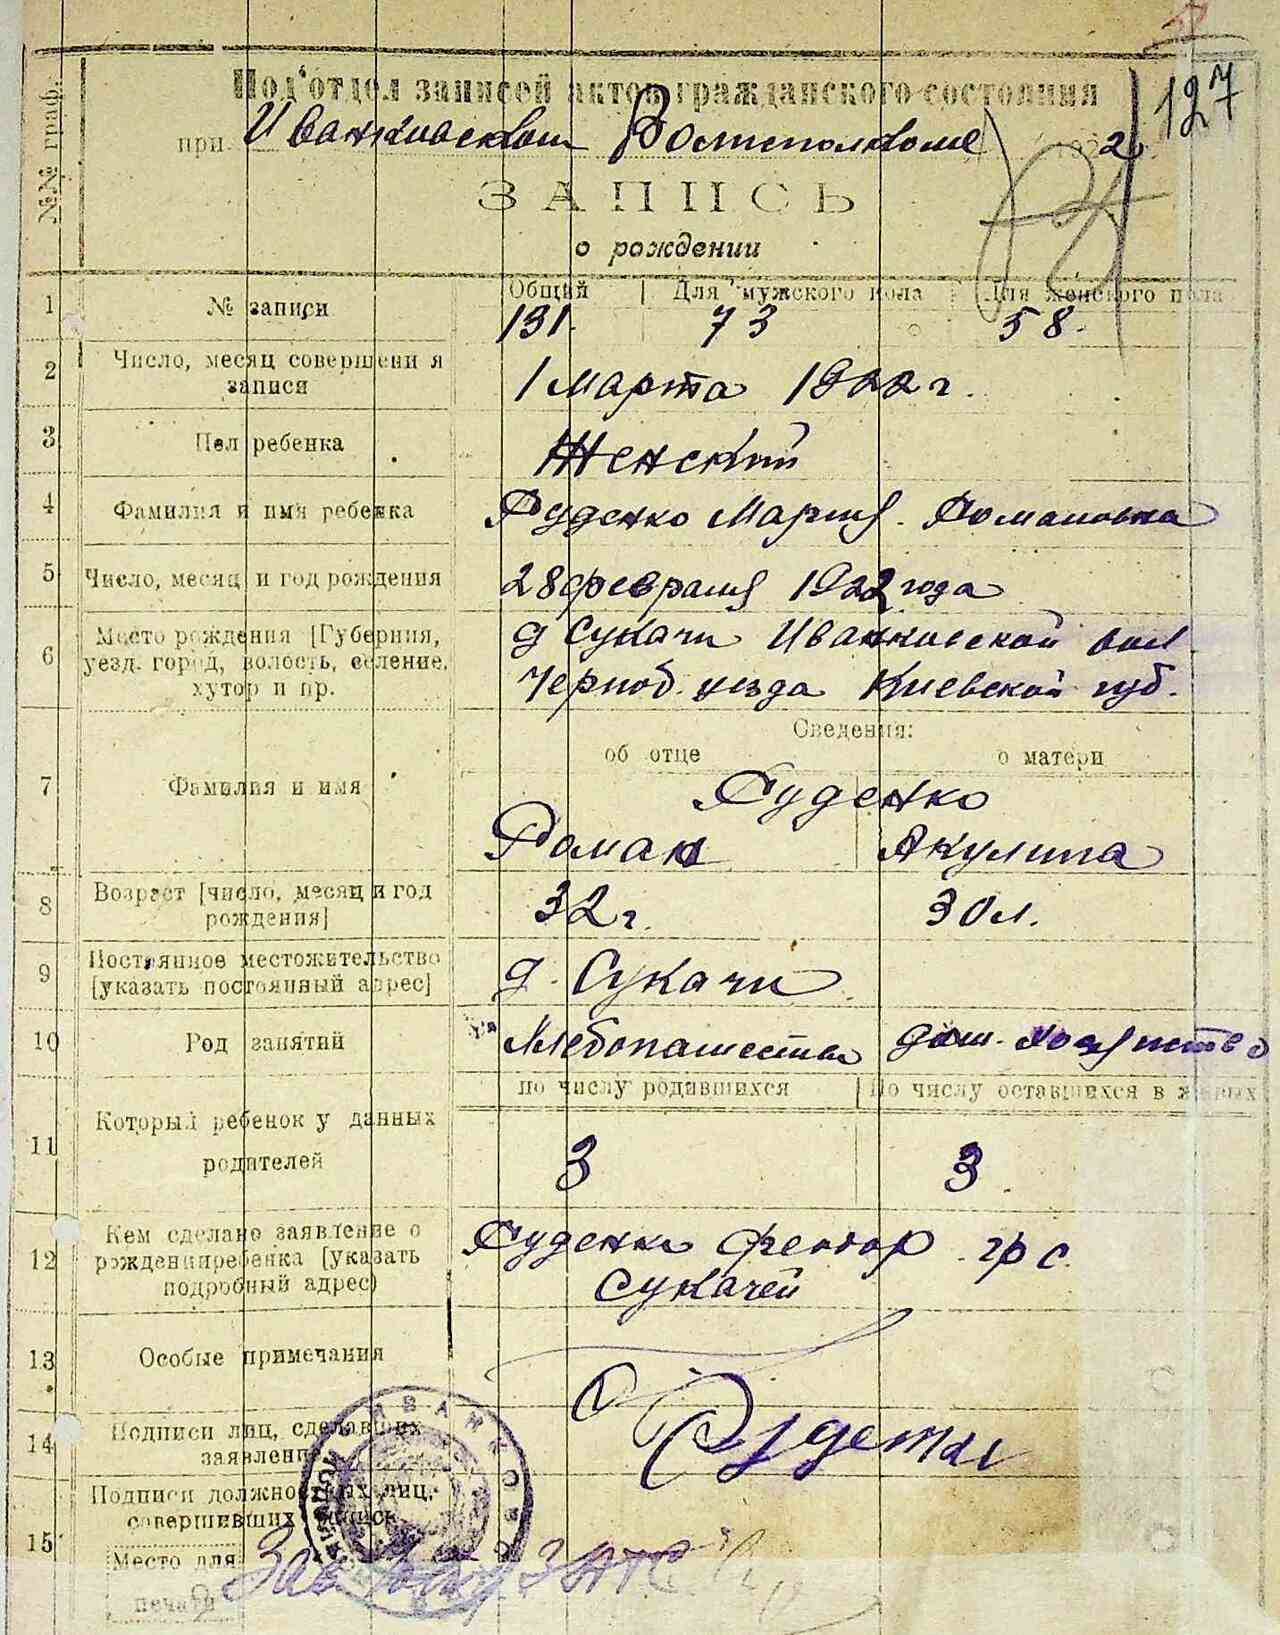 127
№№ граф.
Под'отдел записей актов гражданского состояния
при Иванковском Волисполкоме 1922
ЗАПИСЬ
о рождении
1 № записи Общий Для мужского пола Для женского пола
131. 73 58.
2 Число, месяц совершения записи 1 Марта 1922 г.
3 Пол ребенка Женский
4 Фамилия и имя ребенка Руденко Мария. Романовна
5 Число, месяц и год рождения 28 февраля 1922 года
6 Место рождения [Губерния, д Сукачи Иванковской вол.
уезд. город, волость, селение,
хутор и пр. Черноб. уезда Киевской губ.
Сведения:
об отце о матери
7 Фамилия и имя Руденко
Роман Акулина
8 Возраст [число, месяц и год
рождения] 32 г. 30 л.
9 Постоянное местожительство
[указать постоянный адрес] д. Сукачи
10 Род занятий Хлебопашество дом. хозяйство
по числу родившихся По числу оставшихся в живых
11 Который ребенок у данных
родителей 3 3.
12 Кем сделано заявление о Руденко Феодор гр с.
рождении ребенка [указать Сукачей
подробный адрес)
13 Особые примечания
14 Подписи лиц, сделавших
заявление Руденко
Подписи должностных лиц,
совершивших запись
15 Место для
печати Зав ЗАГС